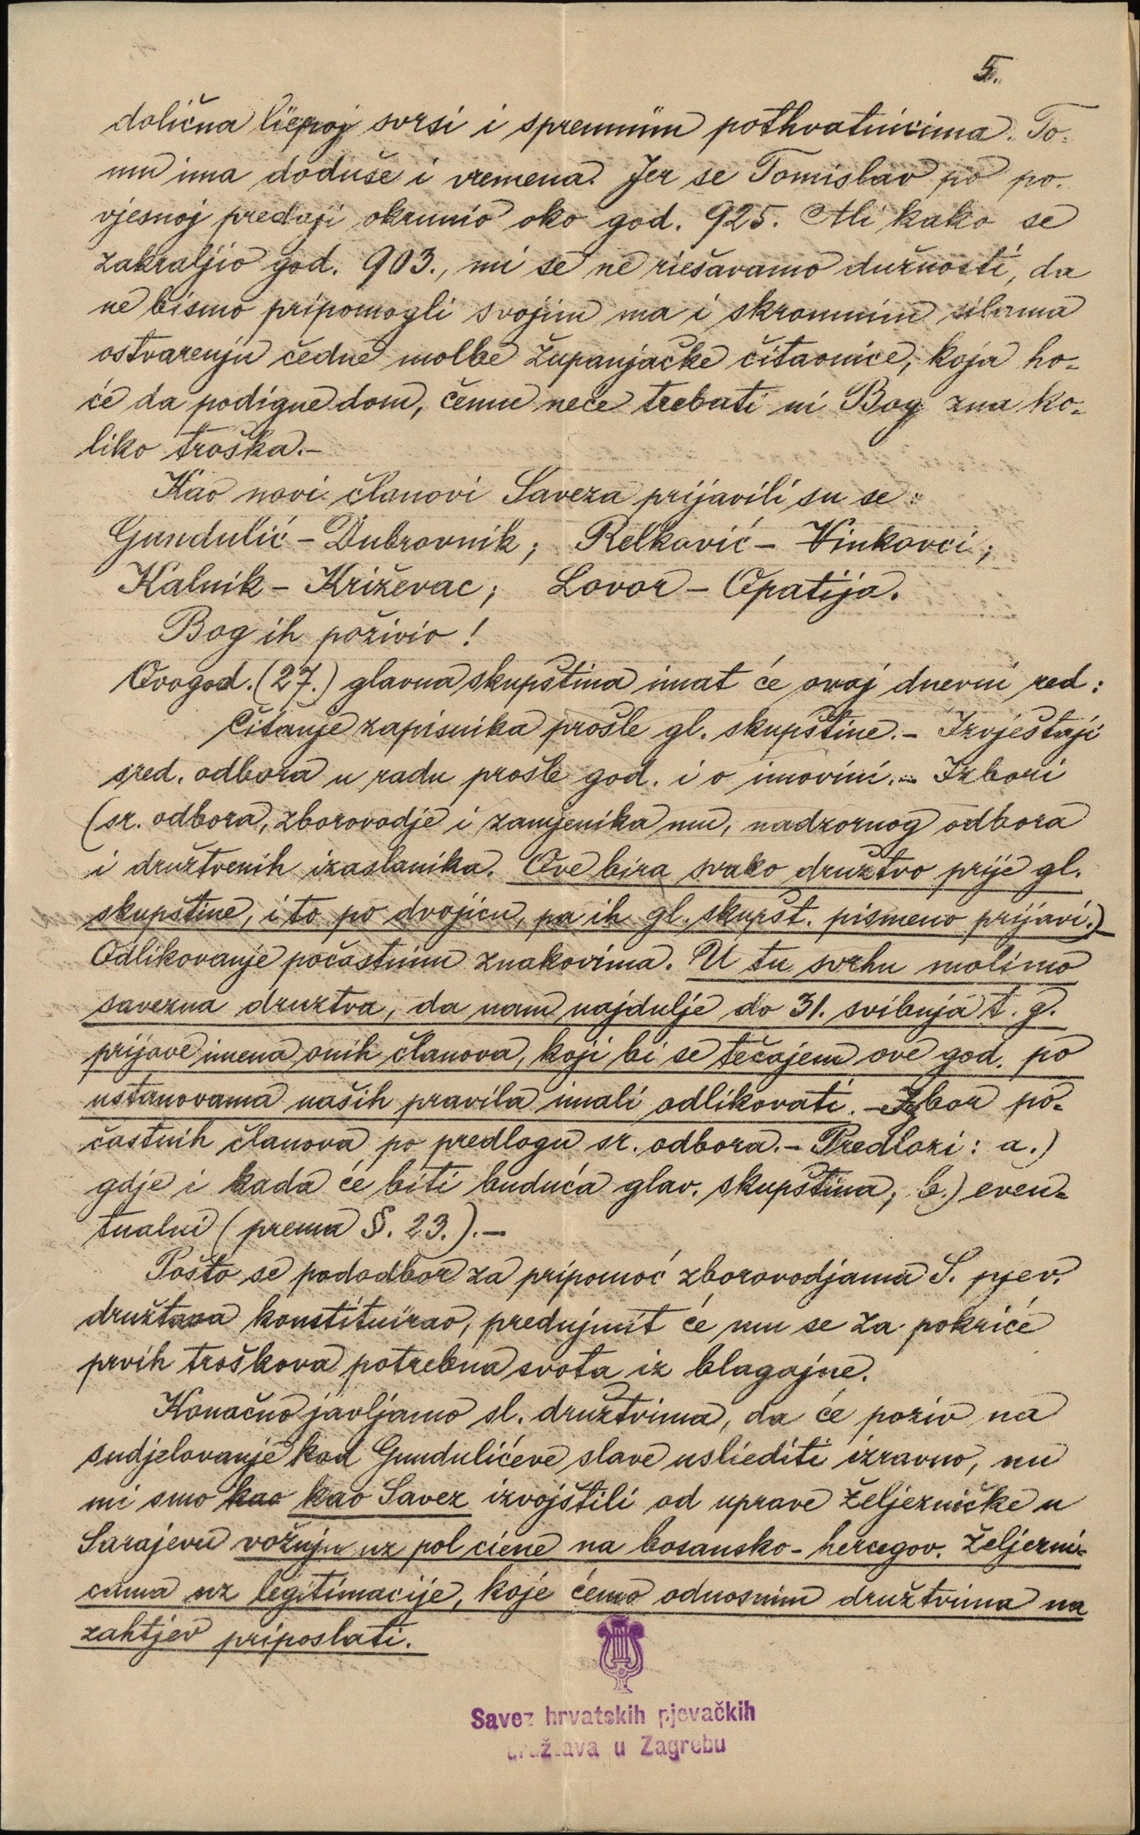 5.
dolična liepoj svrsi i spremnim pothvatnicima. To-
mu ima doduše i vremena. Jer se Tomislav po po-
vjesnoj predaji okrunio oko god. 925. Ali kako se
zakraljio god. 903., mi se ne riešavamo dužnosti, da
ne bismo pripomogli svojim ma i skromnim silama
ostvarenju čedne molbe Županjačke čitaonice, koja ho-
će da podigne dom, čemu neće trebati ni Bog zna ko-
liko troška.-
Kao novi članovi Saveza prijavili su se:
Gundulić - Dubrovnik; Relković - Vinkovci;
Kalnik - Križevac; Lovor - Opatija.
Bog ih poživio!
Ovogod. (27.) glavna skupština imat će ovaj dnevni red:
Čitanje zapisnika prošle gl. skupštine.- Izvještaji
sred. odbora u radu prošle god. i o imovini.- Izbori
(sr. odbora, zborovodje i zamjenika mu, nadzornog odbora
i družtvenih izaslanika. Ove bira svako družtvo prije gl.
skupštine, i to po dvojicu, pa ih gl. skupšt. pismeno prijavi.)
Odlikovanje počastnim znakovima. U tu svrhu molimo
savezna družtva, da nam najdulje do 31. svibnja t. g.
prijave imena onih članova, koji bi se tečajem ove god. po
ustanovama naših pravila imali odlikovati.- Izbor po-
častnih članova po predlogu sr. odbora.- Predlozi: a.)
gdje i kada će biti buduća glav. skupština; b.) even-
tualni (prema §. 23.).-
Pošto se pododbor za pripomoć zborovodjama S. pjev.
družtava konstituirao, predujmit će mu se za pokriće
prvih troškova potrebna svota iz blagajne.
Konačno javljamo sl. družtvima, da će poziv na
sudjelovanje kod Gundulićeve slave usliediti izravno, nu
mi smo kao kao Savez izvojštili od uprave željezničke u
Sarajevu vožnju uz pol ciene na bosansko-hercegov. željezni-
cama uz legitimacije, koje ćemo odnosnim družtvima na
zahtjev priposlati.
Savez hrvatskih pjevačkih
družtava u Zagrebu